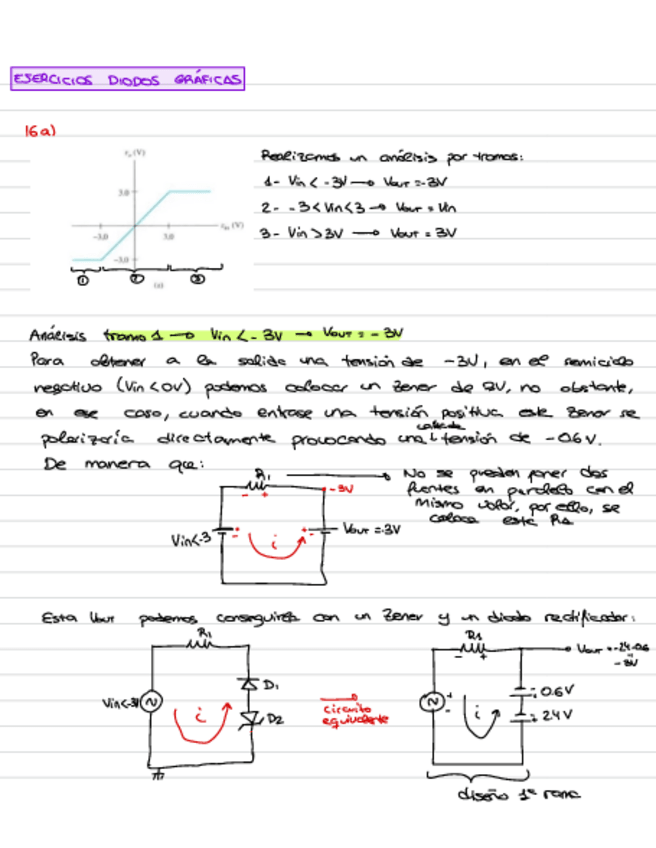 EJERCICIOS DIODOS GRÁFICAS
16a)
vo (V)
3.0
vin (V)
-3.0
3.0
-3.0
① ② ③
(a)
Realizamos un análisis por tramos:
1- Vin < -3V → Vout = -3V
2- -3 < Vin < 3 → Vout = Vin
3- Vin > 3V → Vout = 3V
Análisis tramo 1 → Vin < -3V → Vout = -3V
Para obtener a la salida una tensión de -3V, en el semiciclo
negativo (Vin < 0V) podemos colocar un zener de 3V, no obstante,
en ese caso, cuando entrase una tensión positiva este zener se
polarizaría directamente provocando una caída tensión de -0.6V.
De manera que:
R1
- +
-3V
No se pueden poner dos
fuentes en paralelo con el
mismo valor, por ello, se
coloca esta R1
Vin<-3
i
Vout = -3V
Esta Vout podemos conseguirla con un zener y un diodo rectificador:
R1
Vin<-3V
i
D1
D2
circuito
equivalente
R1
- +
Vout = -2.4-0.6
= -3V
i
0.6V
2.4V
diseño 1ª rama